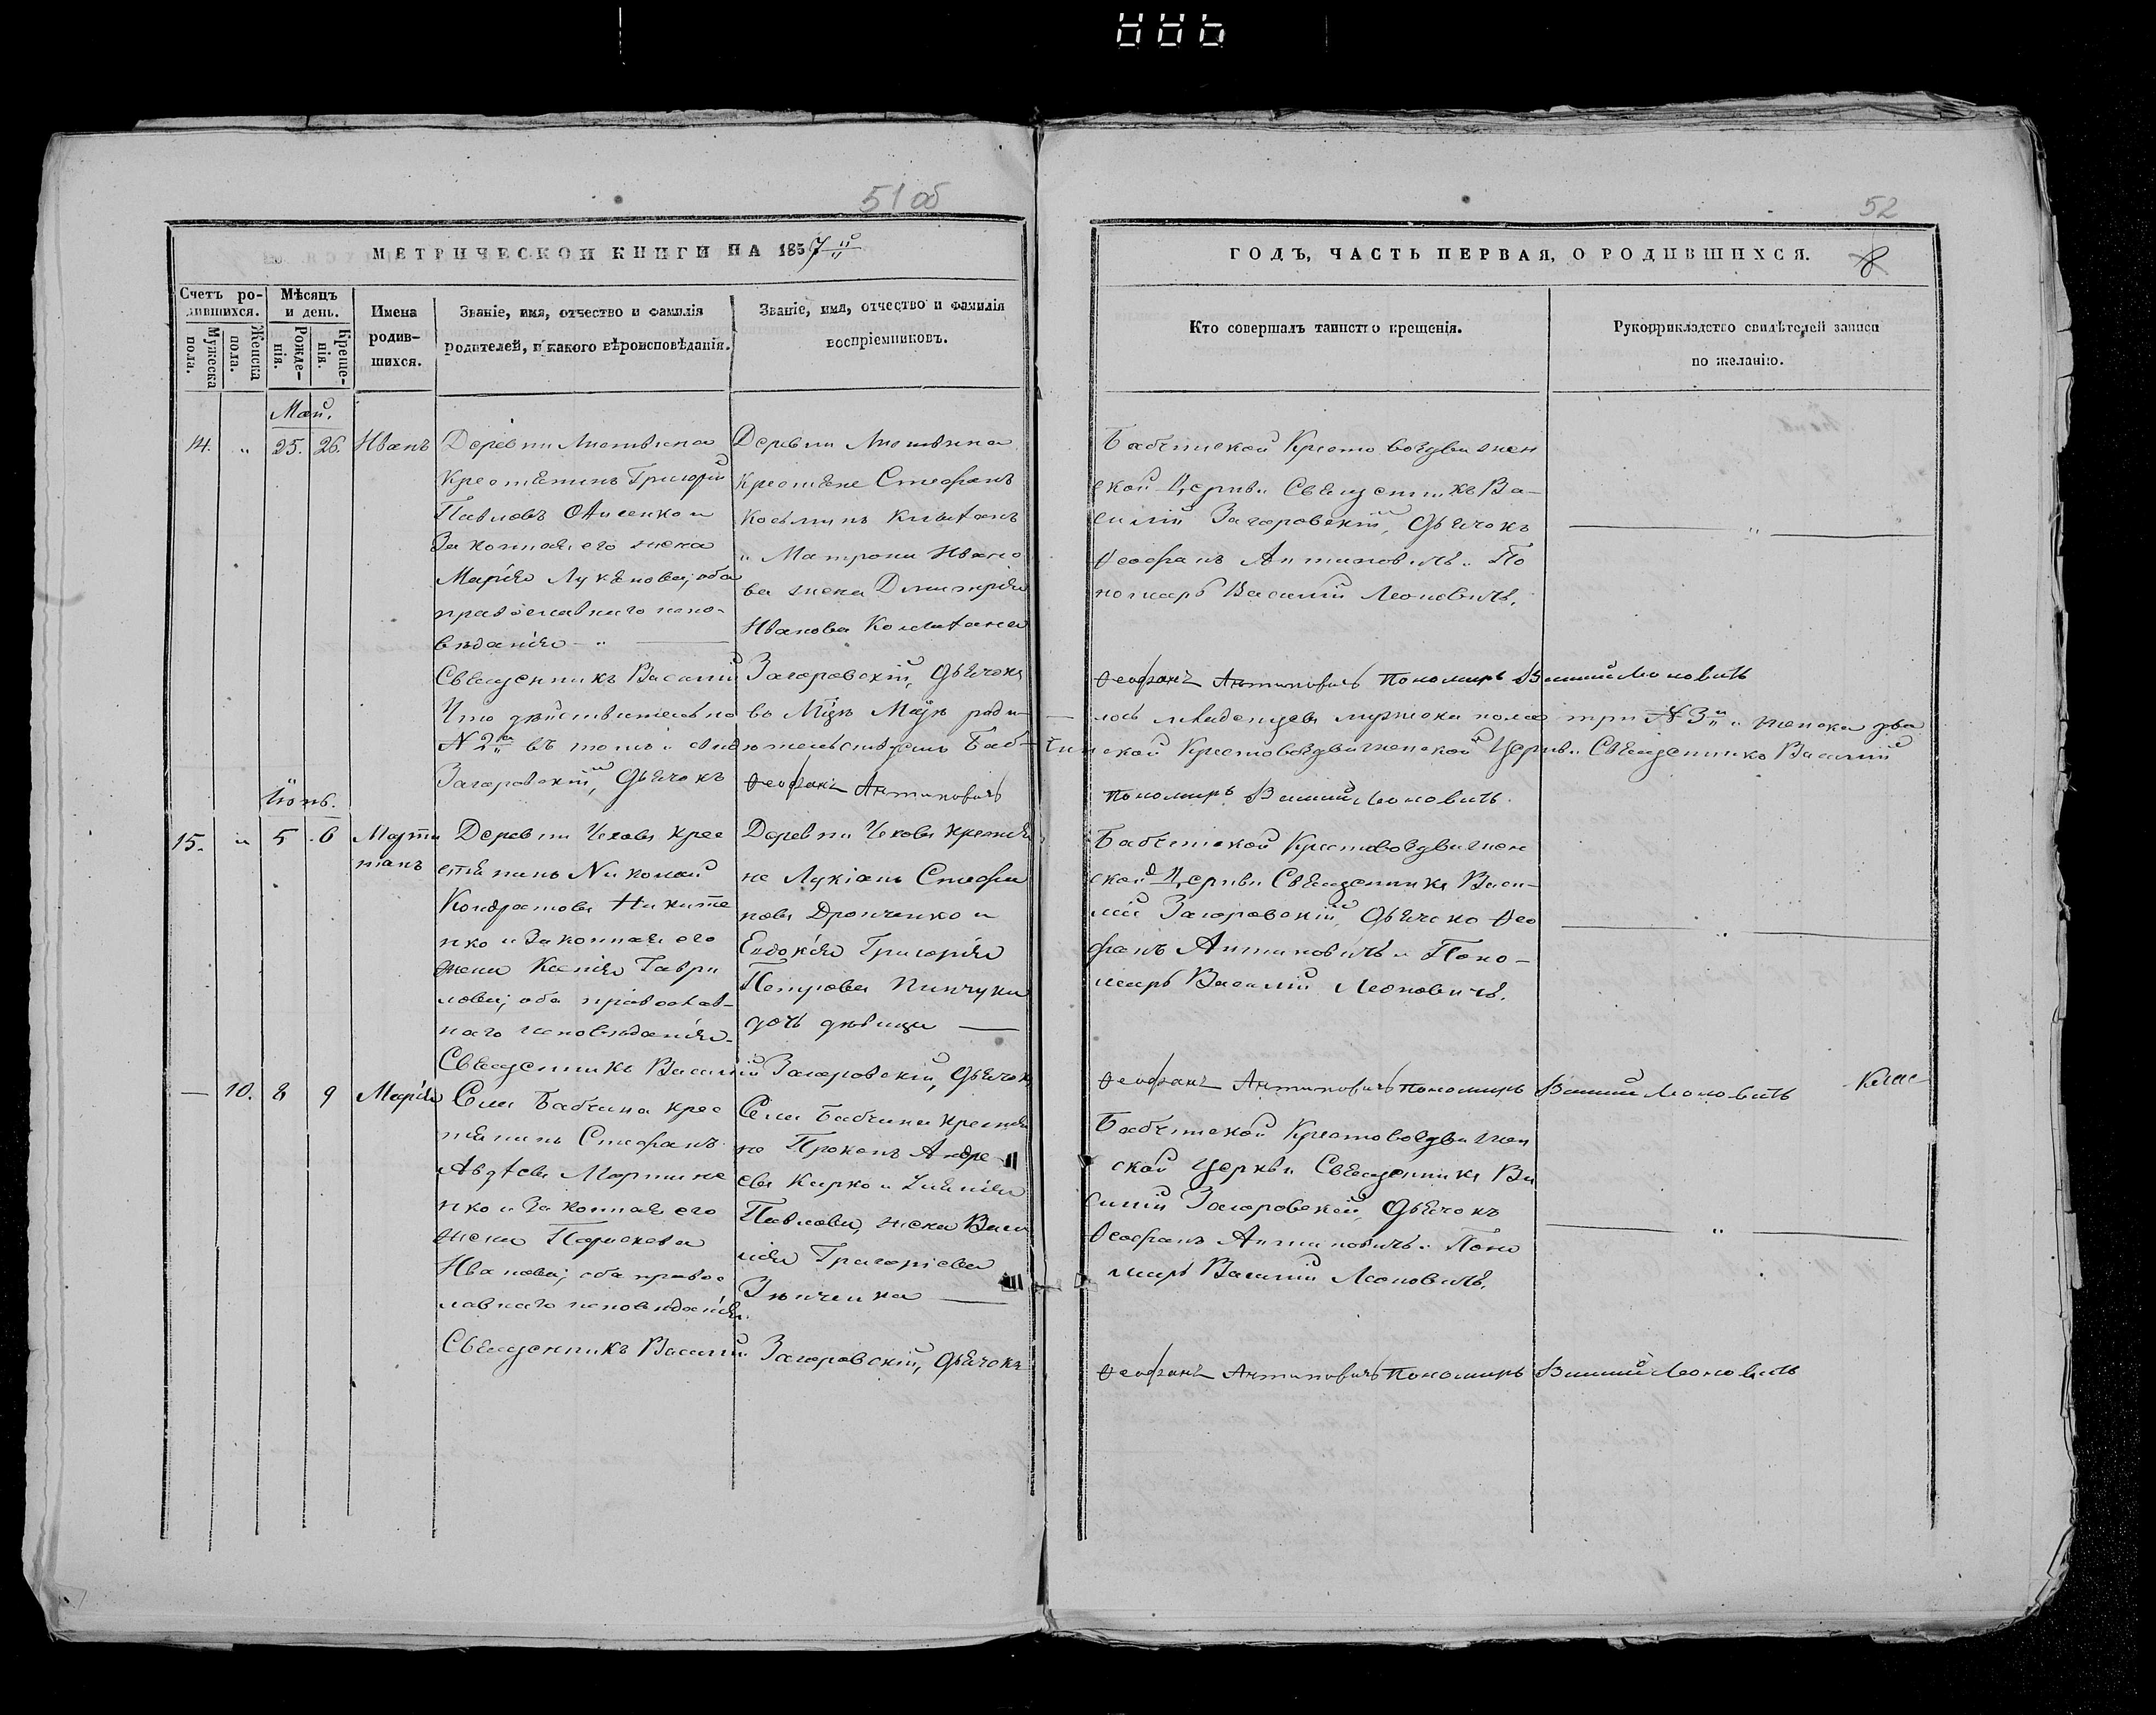 51 об
МЕТРИЧЕСКОЙ КНИГИ НА 1857й
Счетъ родившихся.
Мужеска пола.
Женска пола.
Мѣсяцъ и день.
Рожденія.
Крещенія.
Имена родившихся.
Званіе, имя, отчество и фамилія
родителей, и какого вѣроисповѣданія.
Званіе, имя, отчество и фамилія
воспріемниковъ.
Май.
14. " 25. 26. Иванъ
Деревни
Крестьянинъ Григорій
Павловъ и
Законная его жена
Марія Лукьянова, оба
православнаго испо-
вѣданія - " -
Деревни
Крестьяне Стефанъ
Косьминъ
и Матрона Ивано
ва жена Димитрія
Иванова
Священникъ Василій Загоровскій, Дьячокъ
Что дѣйствительно въ Маѣ роди-
№ 2 въ томъ и свидѣтельствуемъ Баб-
Загоровскій, Дьячокъ Ѳеофанъ Антиповичъ
Іюнь.
15. " 5 6 Марти
ніанъ
Деревни крес
тьянинъ Николай
Кондратовъ Никите
нко и Законная его
жена Ксенія Гаври
лова; оба православ-
наго исповѣданія.
Деревни крестья
не Лукіанъ Стефа
новъ Дронченко и
Евдокія Григорія
Петрова Пинчука
дочь дѣвица —
Священникъ Василій Загоровскій, Дьячокъ
— 10. 8 9 Марія
Села Бабчина крес
тьянинъ Стефанъ
Авдѣевъ Мартине
нко и Законная его
жена Параскева
Иванова; оба правос
лавнаго исповѣданія.
Села Бабчина крестья
не Прокопъ Андре
евъ Кирко и
Павлова, жена Васи
лія Григоріева
Зѣнченка —
Священникъ Василій Загоровскій, Дьячокъ
52
ГОДЪ, ЧАСТЬ ПЕРВАЯ, О РОДИВШИХСЯ.
8
Кто совершалъ таинство крещенія.
Рукоприкладство свидѣтелей записи
по желанію.
Бабчинской Кресто воздвижен
ской Церкви Священникъ Ва-
силій Загоровскій, Дьячокъ
Ѳеофанъ Антиповичъ и По
номарь Василій Леоновичъ.
Ѳеофанъ Антиповичъ Пономарь Василий Леоновичъ
лось младенцевъ мужеска пола три № 3 и женска два
чинской Крестовоздвиженской Церкви Священникъ Василій
Пономарь Василий Леоновичъ.
Бабчинской Крестовоздвижен
ской Церкви Священникъ Васи-
лій Загоровскій, Дьячокъ Ѳео
фанъ Антиповичъ и Поно-
марь Василій Леоновичъ.
Ѳеофанъ Антиповичъ Пономарь Василий Леоновичъ
Бабчинской Крестовоздвижен
ской Церкви Священникъ Ва
силій Загоровской, Дьячокъ
Ѳеофанъ Антиповичъ и Поно
марь Василій Леоновичъ.
Ѳеофанъ Антиповичъ Пономарь Василий Леоновичъ